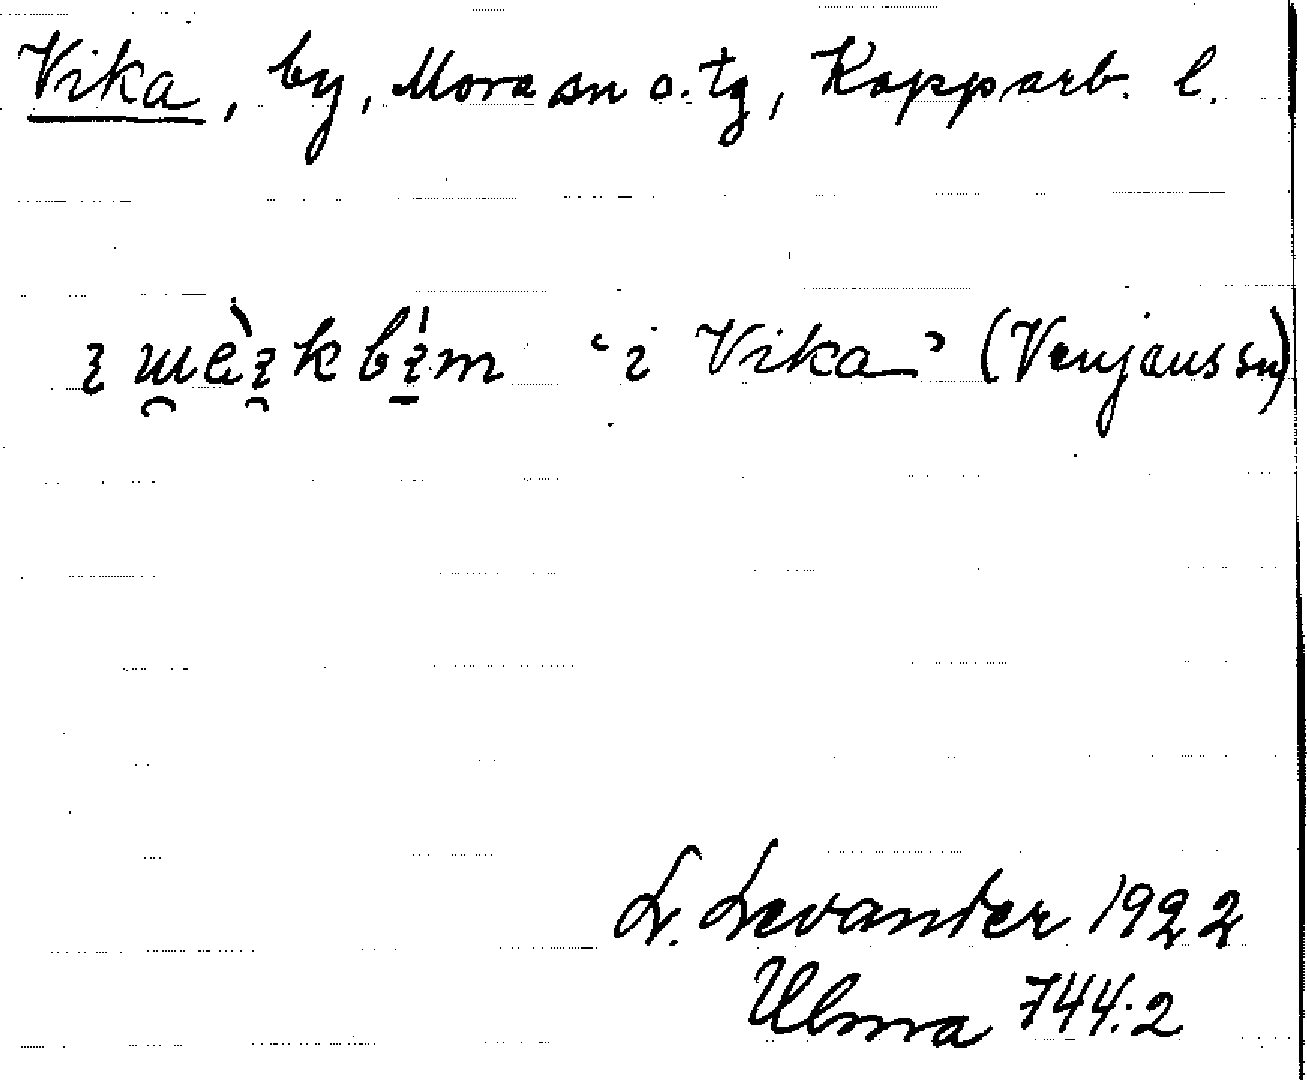 Vika, by, Mora sn o. tg, Kopparb. l.
ɩ wèɩkbɩ́m ‘i Vika’ (Venjans sn)
L. Levander 1922
Ulma 744:2